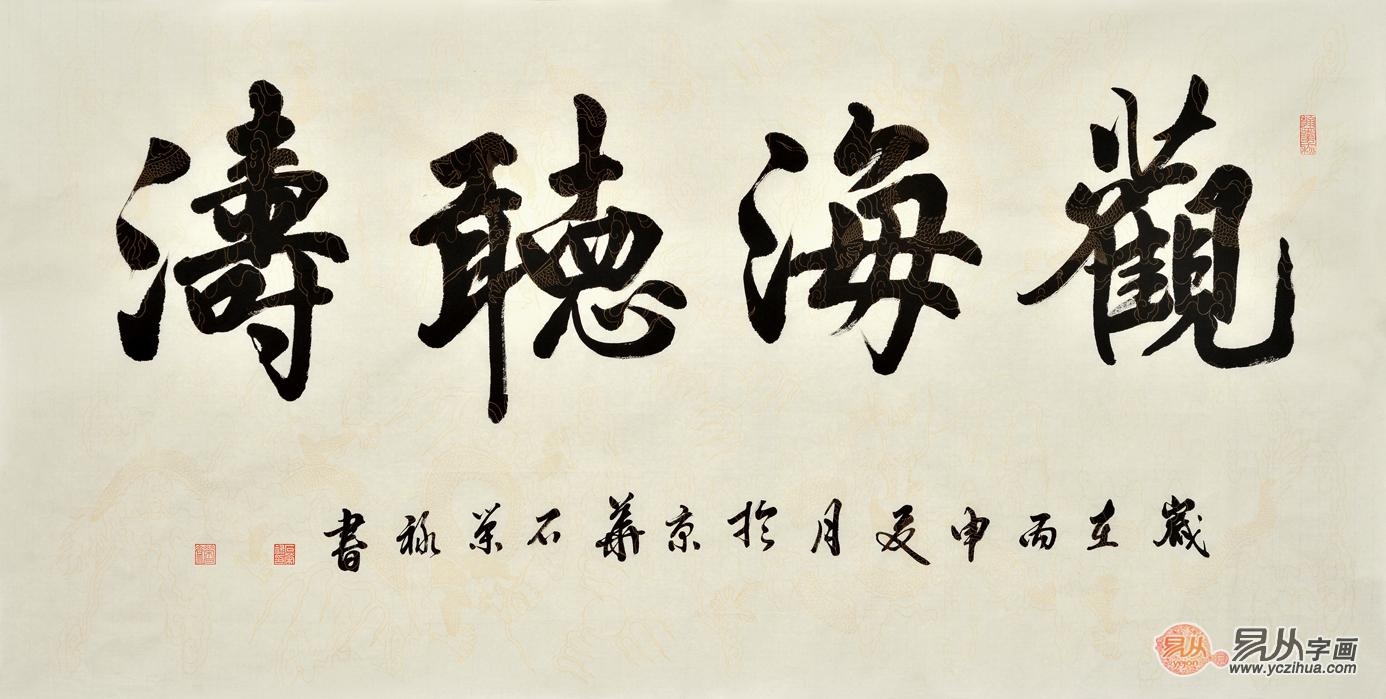 觀海聽濤
歲在丙申夏月於京華石榮祿書
易从
yicon
易从字画
www.yczihua.com